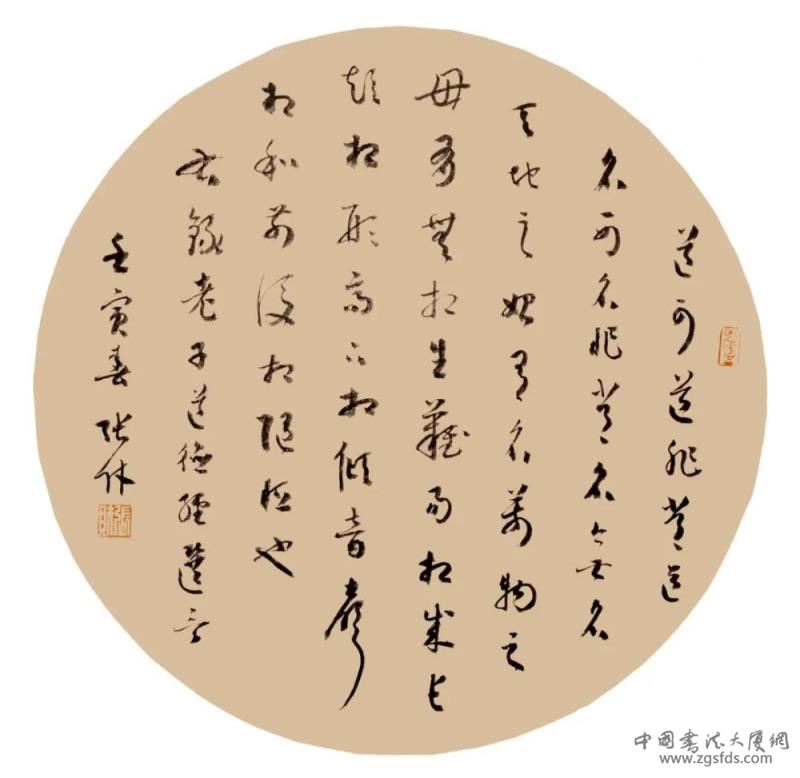 道可道非常道
名可名非常名无名
天地之始有名萬物之
母有無相生難易相成長
短相形高下相傾音聲
相和前後相隨恒也
右錄老子道德經選
壬寅春張休
中國書法大廈網
www.zgsfds.com